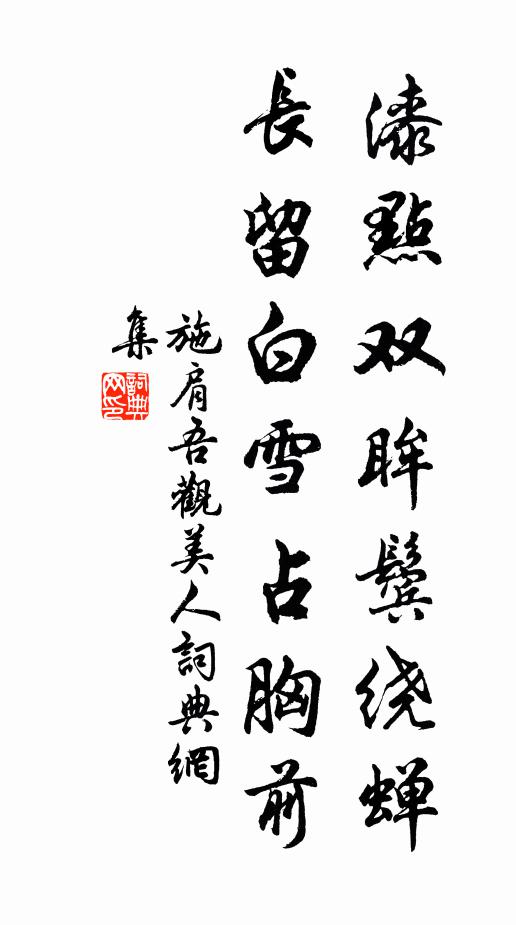 漆點双眸鬓绕蝉
長留白雪占胸前
施肩吾觀美人詞典網
集
詞典
网印